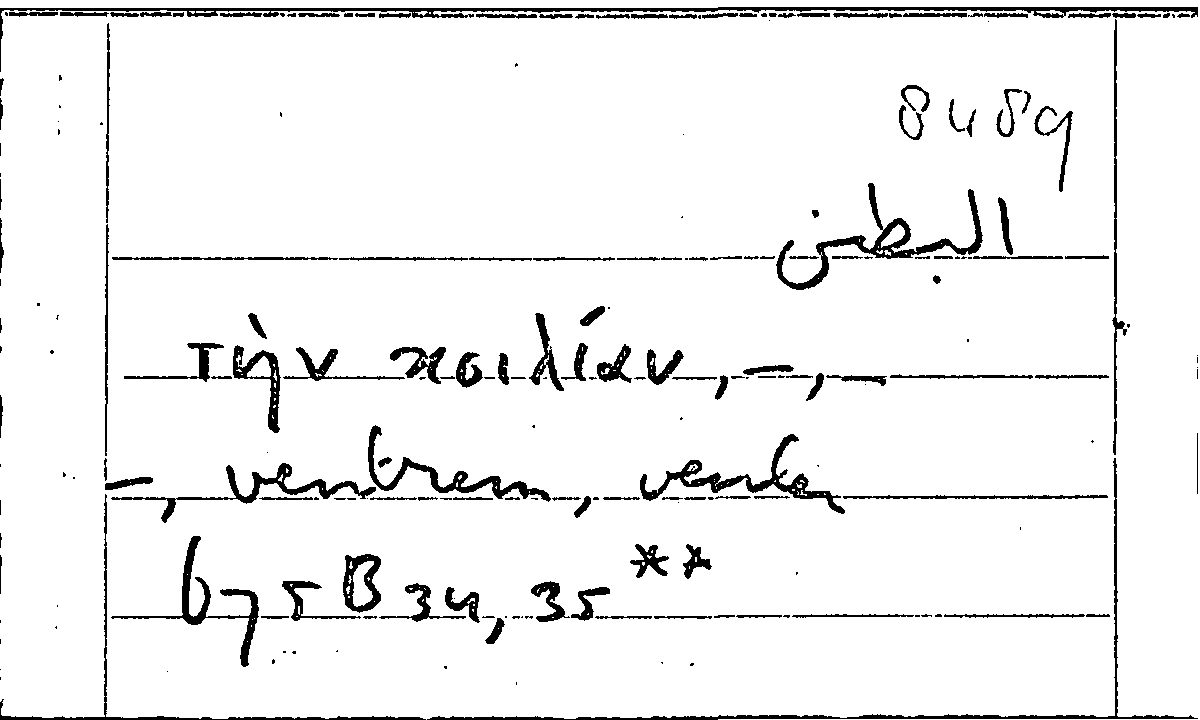 8489
البطن
τὴν κοιλίαν, –, –
–, ventrem, venter
675 B 34, 35**